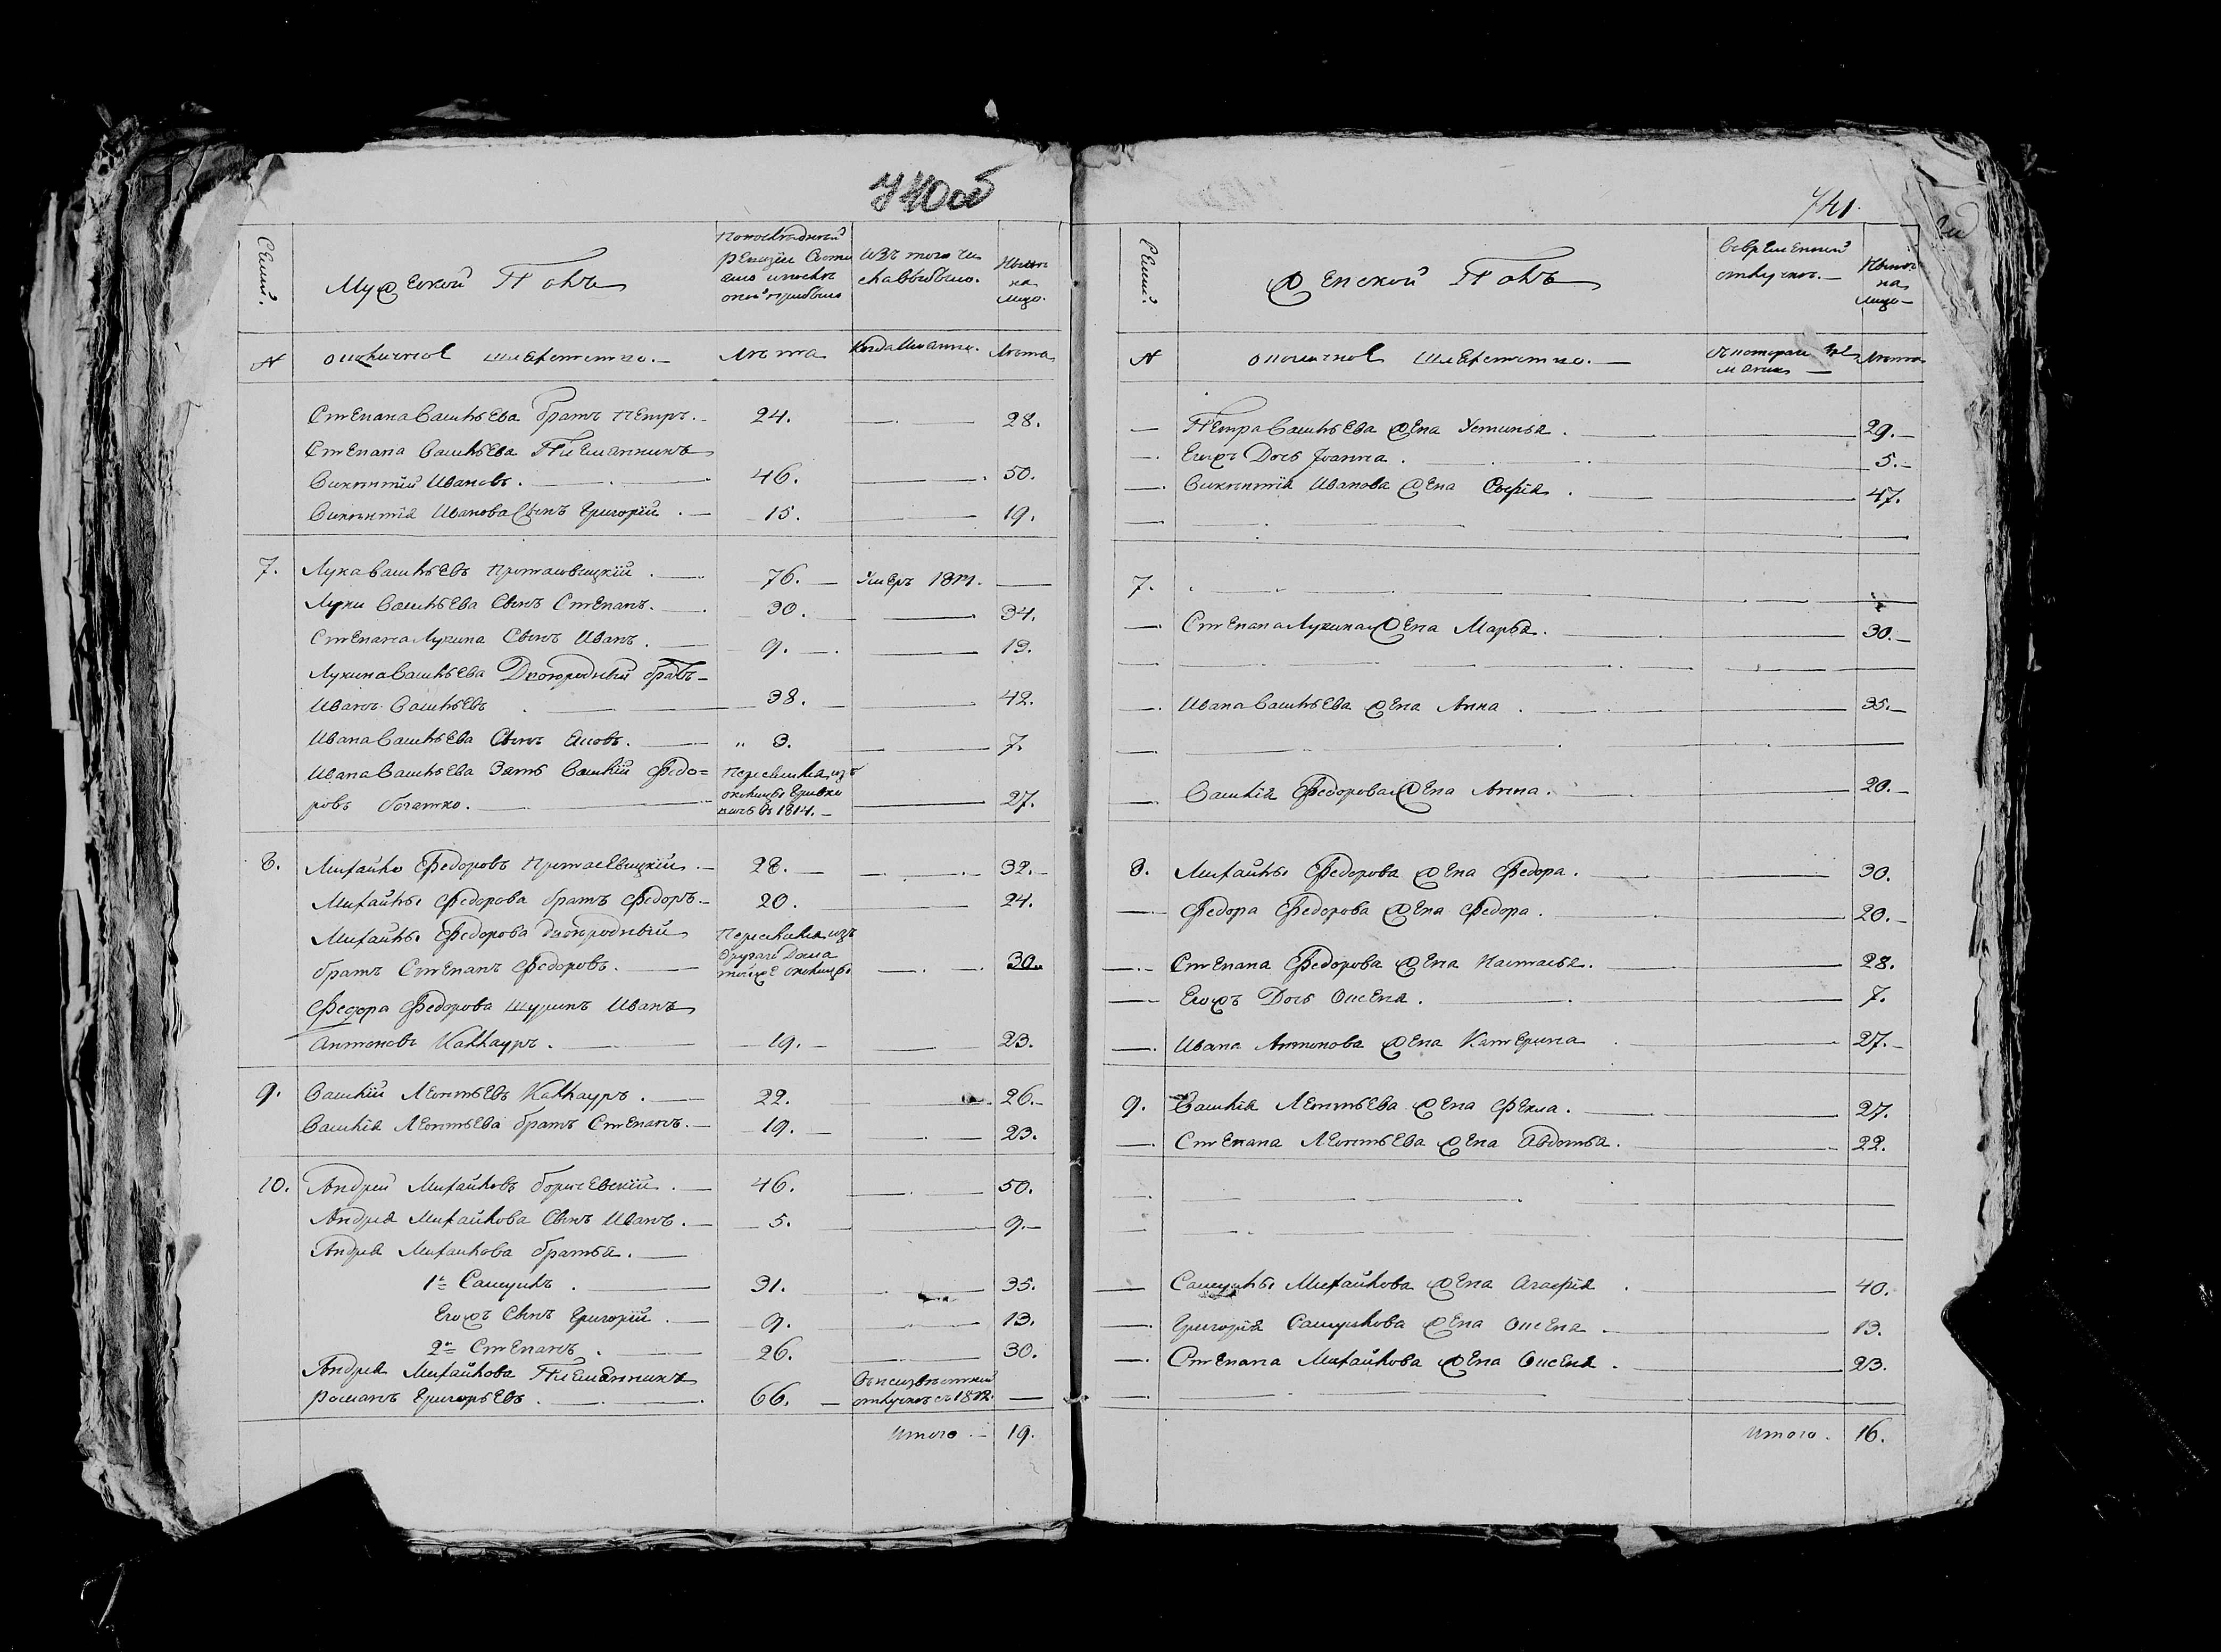 740об
Семьи.
Мужеской Полъ
По последней
ревизіи состо
яло и после
оной прибыло
Изъ того чи
сла выбыло.
Ныне
на
лицо.
№
околичное шляхетство.
Лета
Когда именно.
Лета
Степана Васильева братъ Петръ. 24. 28.
Степана Васильева Племянникъ
Викентій Ивановъ. 46. 50.
Викентія Иванова Сынъ Григорій. 15. 19.
7. Лука Васильевъ Протасовицкій. 76. Умеръ 1811.
Луки Васильева Сынъ Степанъ. 30. 34.
Степана Лукина Сынъ Иванъ. 9. 13.
Лукина Васильева Двоюродный братъ
Иванъ Васильевъ 38. 42.
Ивана Васильева Сынъ Емовъ. 3. 7.
Ивана Васильева Зять Василій Федо=
ровъ Богатко.
Перешелъ изъ
околицы
въ 1814.
27.
8. Михайло Федоровъ Протасевицкій. 28. 32.
Михайлы Федорова братъ Федоръ. 20. 24.
Михайлы Федорова двоюродный
братъ Степанъ Федоровъ.
Перешелъ изъ
другаго Дома
тойже околицы
30.
Федора Федорова шуринъ Иванъ
Антоновъ Каллауръ. 19. 23.
9. Василій Леонтьевъ Каллауръ. 22. 26.
Василія Леонтьева братъ Степанъ. 19. 23.
10. Андрей Михайловъ Борисевскій. 46. 50.
Андрея Михайлова Сынъ Иванъ. 5. 9.
Андрея Михайлова братья.
1й Самуилъ. 31. 35.
Егожъ Сынъ Григорій. 9. 13.
2й Степанъ. 26. 30.
Андрея Михайлова Племянникъ
Романъ Григорьевъ. 66.
Въ неизвестной
отлучке съ 1812.
Итого 19.
741.
Семьи.
Женской Полъ
Во временной
отлучке.
Ныне
на
лицо
№
околичное шляхетство.
Съ котораго вре
мени
Лета
Петра Васильева жена Устинья. 29.
Егожъ Дочь Іоанна. 5.
Викентія Иванова жена Софія. 47.
7.
Степана Лукина жена Марья. 30.
Ивана Васильева жена Анна. 35.
Василія Федорова жена Анна. 20.
8. Михайлы Федорова жена Федора. 30.
Федора Федорова жена Федора. 20.
Степана Федорова жена Настасья. 28.
Егожъ Дочь Оксеня. 7.
Ивана Антонова жена Катерина 27.
9. Василія Леонтьева жена Фекла. 27.
Степана Леонтьева жена Авдотья. 22.
Самуилы Михайлова жена Агафія 40.
Григорія Самуилова жена Оксеня 13.
Степана Михайлова жена Оксеня. 23.
Итого. 16.